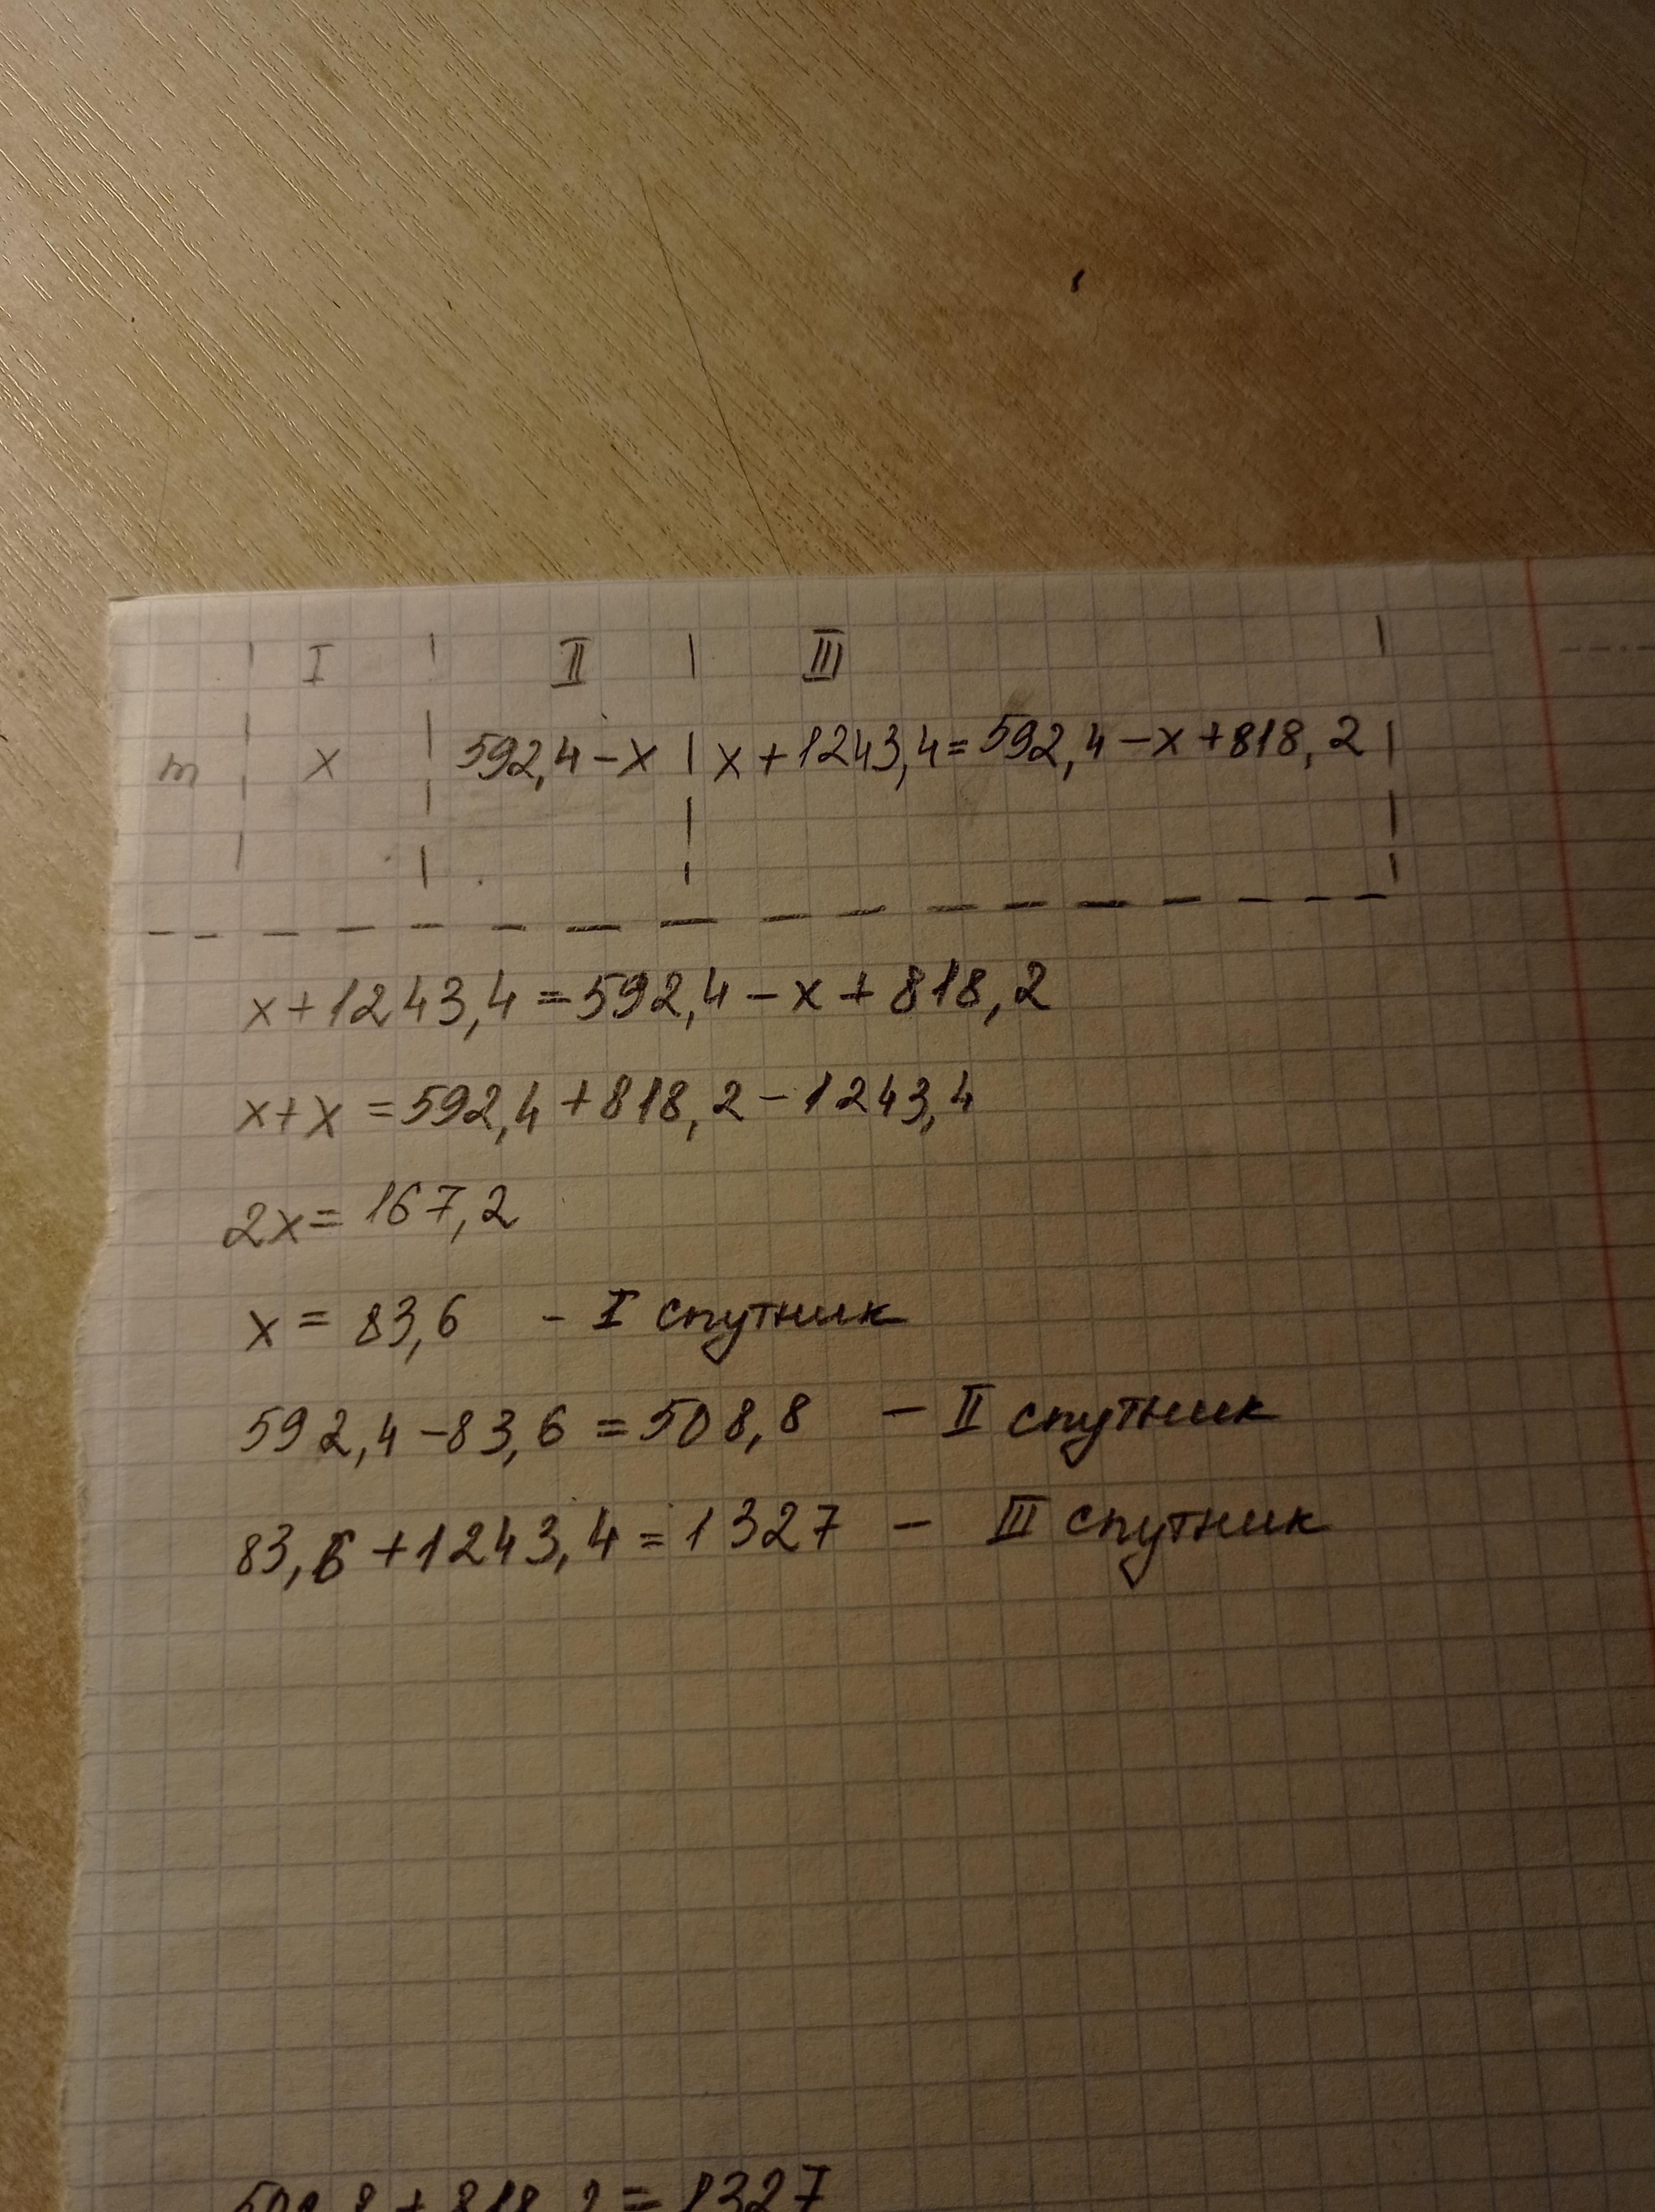 I II III
m x 592,4-x x+1243,4=592,4-x+818,2
x+1243,4=592,4-x+818,2
x+x=592,4+818,2-1243,4
2x=167,2
x=83,6 - I спутник
592,4-83,6=508,8 - II спутник
83,6+1243,4=1327 - III спутник
508,8+818,2=1327